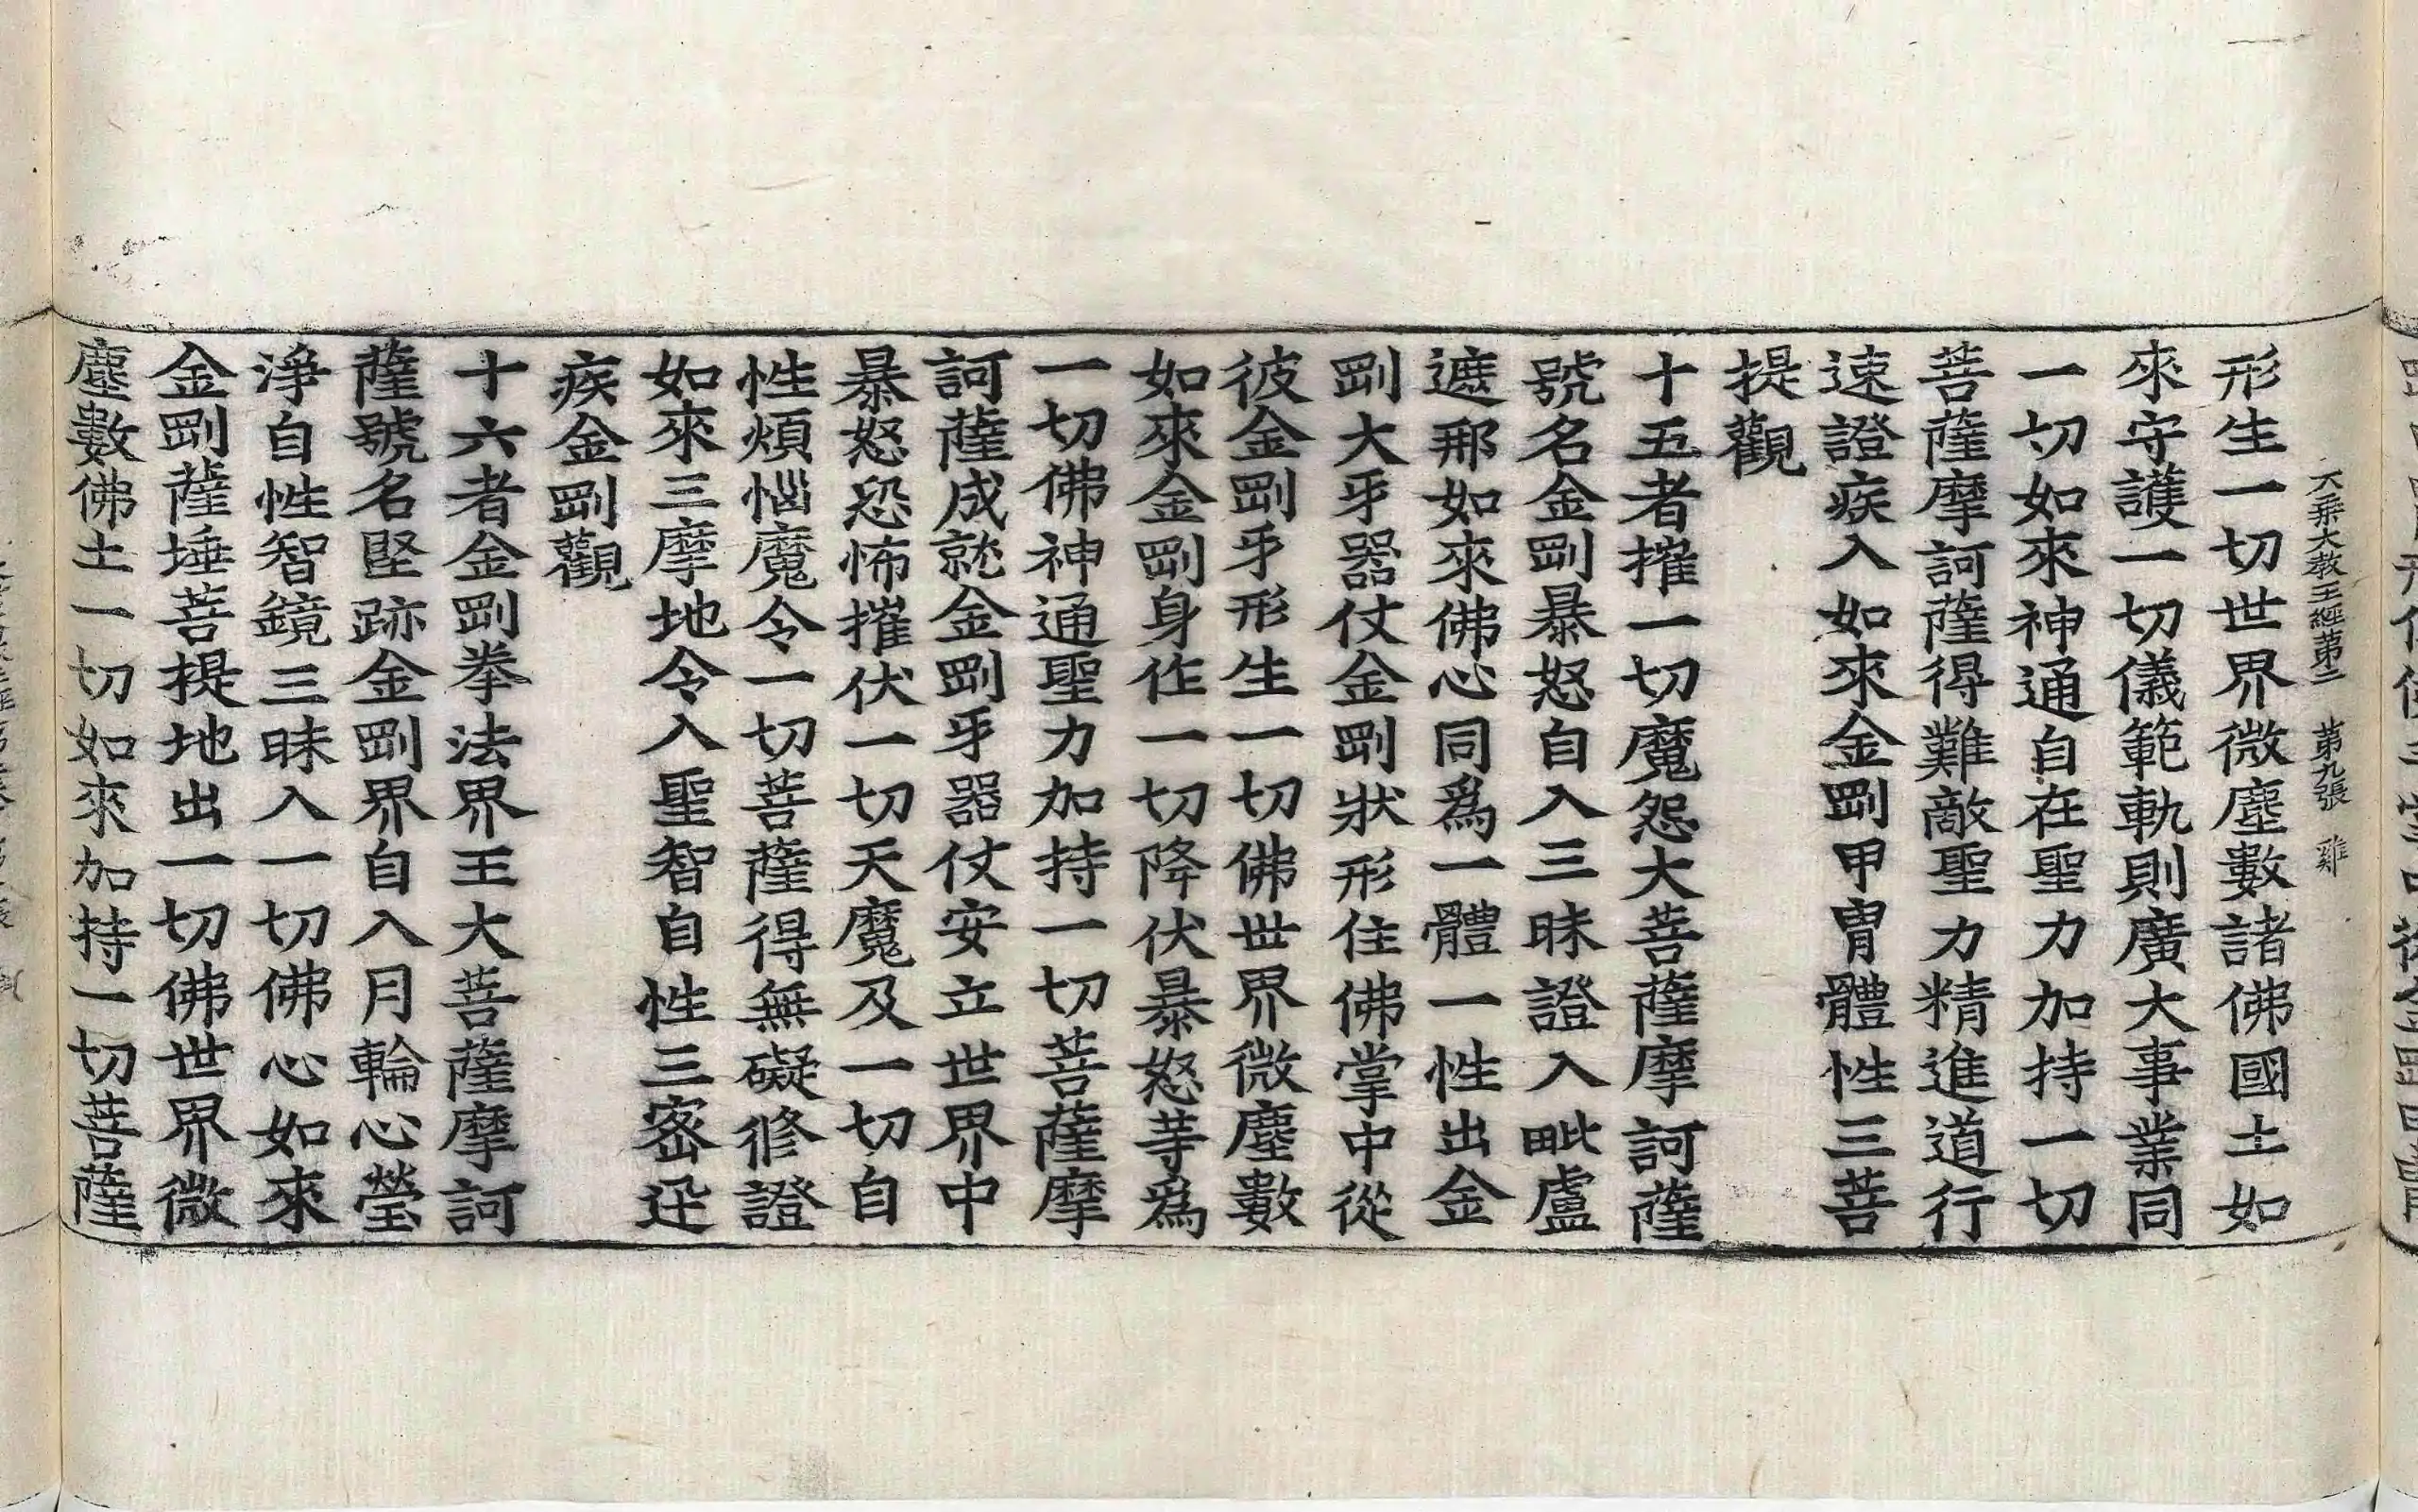 大乘大教王經第二 第九張 雞
形生一切世界微塵數諸佛國土如
來守護一切儀範軌則廣大事業同
一切如來神通自在聖力加持一切
菩薩摩訶薩得難敵聖力精進道行
速證疾入如來金剛甲冑體性三菩
提觀
十五者摧一切魔怨大菩薩摩訶薩
號名金剛暴怒自入三昧證入毗盧
遮那如來佛心同爲一體一性出金
剛大牙器仗金剛狀形住佛掌中從
彼金剛牙形生一切佛世界微塵數
如來金剛身作一切降伏暴怒等爲
一切佛神通聖力加持一切菩薩摩
訶薩成就金剛牙器仗安立世界中
暴怒恐怖摧伏一切天魔及一切自
性煩惱魔令一切菩薩得無礙修證
如來三摩地令入聖智自性三密迅
疾金剛觀
十六者金剛拳法界王大菩薩摩訶
薩號名堅跡金剛界自入月輪心瑩
淨自性智鏡三昧入一切佛心如來
金剛薩埵菩提地出一切佛世界微
塵數佛土一切如來加持一切菩薩